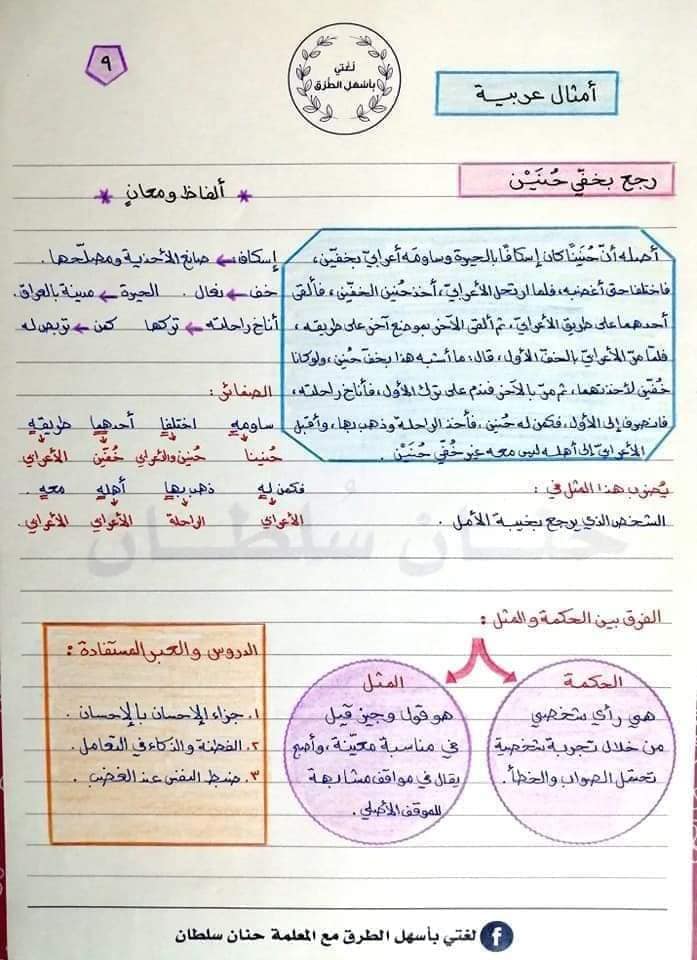 ٩
لغتي
بأسهل الطرق
أمثال عربية
رجع بخفّي حُنَيْن
* ألفاظ ومعانٍ *
أصله أنّ حُنَينًا كان إسكافًا بالحيرة وساومه أعرابيّ بخفّين،
فاختلفا حتى أغضبه، فلما ارتحل الأعرابيّ، أخذ حُنين الخفّين، فألقى
أحدهما على طريق الأعرابيّ، ثم ألقى الآخر بموضع آخر على طريقه،
فلمّا مرّ الأعرابيّ بالخفّ الأول، قال: ما أشبه هذا بخفّ حُنين، ولو كانا
خُفّين لأخذتهما، ثم مرّ بالآخر فندم على ترك الأول، فأناخ راحلته،
فانصرف إلى الأول، فكمن له حُنين، فأخذ الراحلة وذهب بها، وأقبل
الأعرابيّ إلى أهله ليس معه غير خُفّي حُنَيْن.
إسكاف ← صانع الأحذية ومصلّحها.
خف ← نعال. الحيرة ← مدينة بالعراق.
أناخ راحلته ← تركها كمن ← تربص له
الضمائر:
ساومه اختلفا أحدهما طريقه
حُنينا حُنين والأعرابي خُفّين الأعرابي
فكمن له ذهب بها أهله معه.
الأعرابي الراحلة الأعرابي الأعرابي
يُضرب هذا المثل في:
الشخص الذي يرجع بخيبة الأمل.
حنان سُلطان
الفرق بين الحكمة والمثل:
الحكمة
هي رأي شخصي
من خلال تجربة شخصية
تحتمل الصواب والخطأ.
المثل
هو قول وجيز قيل
في مناسبة معيّنة، وأصبح
يقال في مواقف مشابهة
للموقف الأصلي.
الدروس والعبر المستفادة:
١. جزاء الإحسان بالإحسان.
٢. الفطنة والذكاء في التعامل.
٣. ضبط النفس عند الغضب.
لغتي بأسهل الطرق مع المعلمة حنان سلطان